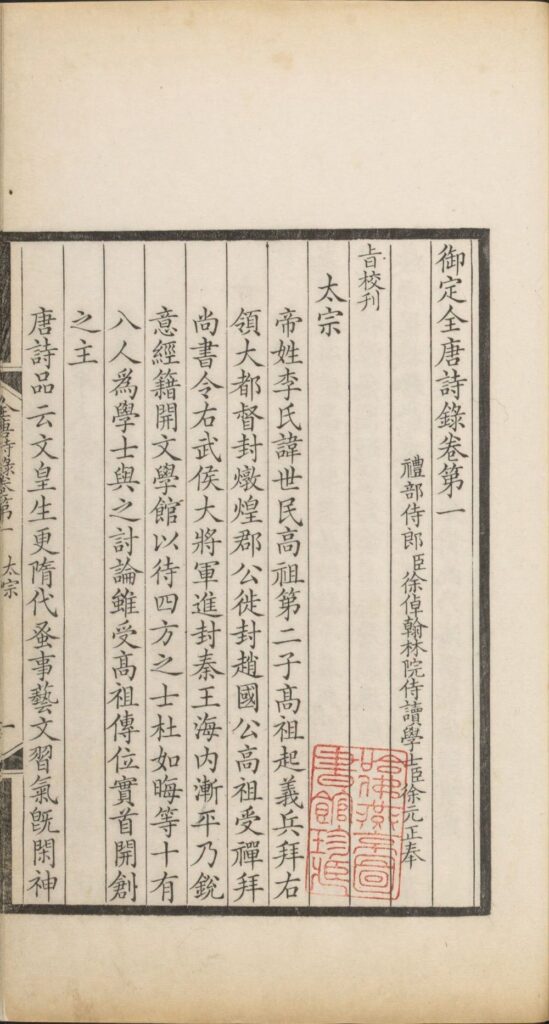 御定全唐詩錄卷第一
禮部侍郎臣徐倬翰林院侍讀學士臣徐元正奉
旨校刊
太宗
帝姓李氏諱世民高祖第二子高祖起義兵拜右
領大都督封燉煌郡公徙封趙國公高祖受禪拜
尚書令右武侯大將軍進封秦王海內漸平乃銳
意經籍開文學館以待四方之士杜如晦等十有
八人爲學士與之討論雖受高祖傳位實首開創
之主
唐詩品云文皇生更隋代蚤事藝文習氣旣閑神
全唐詩錄卷第一
太宗
一
哈佛燕京圖
書館珍藏